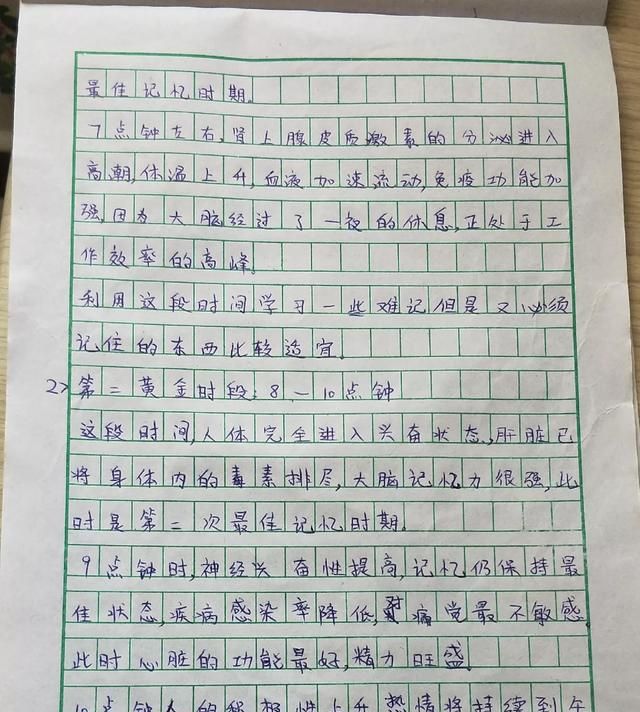 最佳记忆时期。
7点钟左右,肾上腺皮质激素的分泌进入
高潮,体温上升,血液加速流动,免疫功能加
强,因为大脑经过了一夜的休息,正处于工
作效率的高峰。
利用这段时间学习一些难记但是又必须
记住的东西比较适宜。
2> 第二黄金时段:8—10点钟
这段时间,人体完全进入兴奋状态,肝脏已
将身体内的毒素排尽,大脑记忆力很强,此
时是第二次最佳记忆时期。
9点钟时,神经兴奋性提高,记忆仍保持最
佳状态,疾病感染率降低,对痛觉最不敏感。
此时心脏的功能最好,精力旺盛。
10点钟人的积极性上升,热情将持续到午